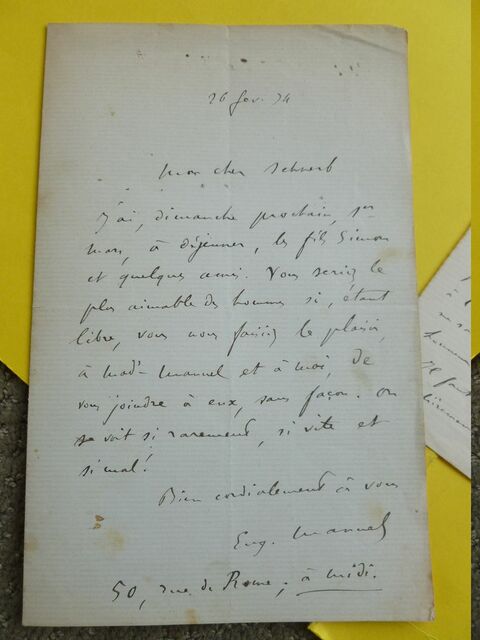 26 fev. 74
Mon cher Schwob
J'ai, dimanche prochain, 1er
mars, à déjeuner, les fils Simon
et quelques amis. Vous seriez le
plus aimable des hommes si, étant
libre, vous nous faisiez le plaisir,
à Made Manuel et à moi, de
vous joindre à eux, sans façon. On
se voit si rarement, si vite et
si mal!
Bien cordialement à vous
Eug. Manuel
50, rue de Rome, à midi.